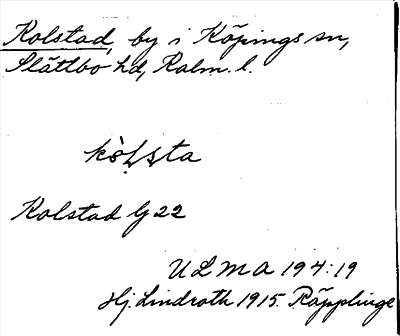 Kolstad, by i Köpings sn,
Slättbo hd, Kalm. l.
Kolstad Gj 22
ULMA 194:19
Hj. Lindroth 1915. Räpplinge